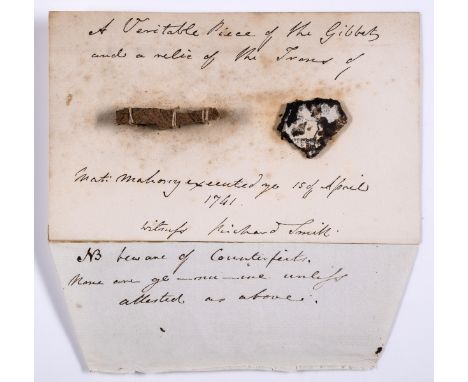 A Veritable Piece of the Gibbet
and a relic of the Irons of
Matt. Mahony executed ye 15 of April
1741.
witness Richard Smith.
NB beware of Counterfeits.
None are ge-nu-ine unless
attested as above.